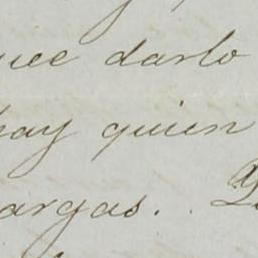 que darlo
hay quien
argas.